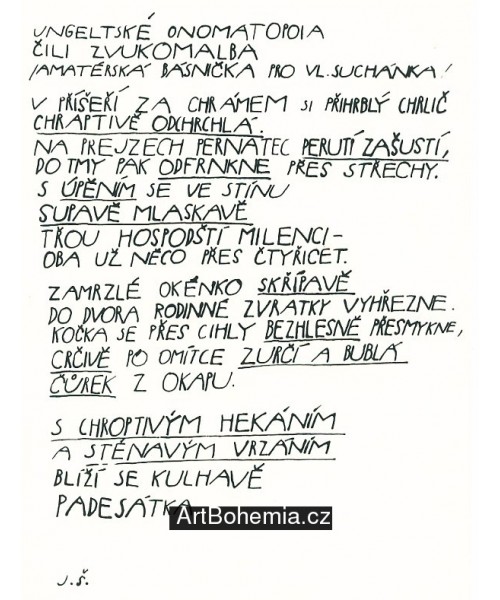 UNGELTSKÉ ONOMATOPOIA
ČILI ZVUKOMALBA
/AMATÉRSKÁ BÁSNIČKA PRO VL. SUCHÁNKA/
V PŘÍŠEŘÍ ZA CHRÁMEM SI PŘIHRBLÝ CHRLIČ
CHRAPTIVĚ ODCHRCHLÁ.
NA PREJZECH PERNATEC PERUTÍ ZAŠUSTÍ,
DO TMY PAK ODFRNKNE PŘES STŘECHY.
S ÚPĚNÍM SE VE STÍNU
SUPAVĚ MLASKAVĚ
TŘOU HOSPODŠTÍ MILENCI –
OBA UŽ NĚCO PŘES ČTYŘICET.
ZAMRZLÉ OKÉNKO SKŘÍPAVĚ
DO DVORA RODINNÉ ZVRATKY VYHŘEZNE.
KOČKA SE PŘES CIHLY BEZHLESNĚ PŘESMYKNE,
CRČIVĚ PO OMÍTCE ZURČÍ A BUBLÁ
ČŮREK Z OKAPU.
S CHROPTIVÝM HEKÁNÍM
A STÉNAVÝM VRZÁNÍM
BLÍŽÍ SE KULHAVĚ
PADESÁTKA
ArtBohemia.cz
J.Š.